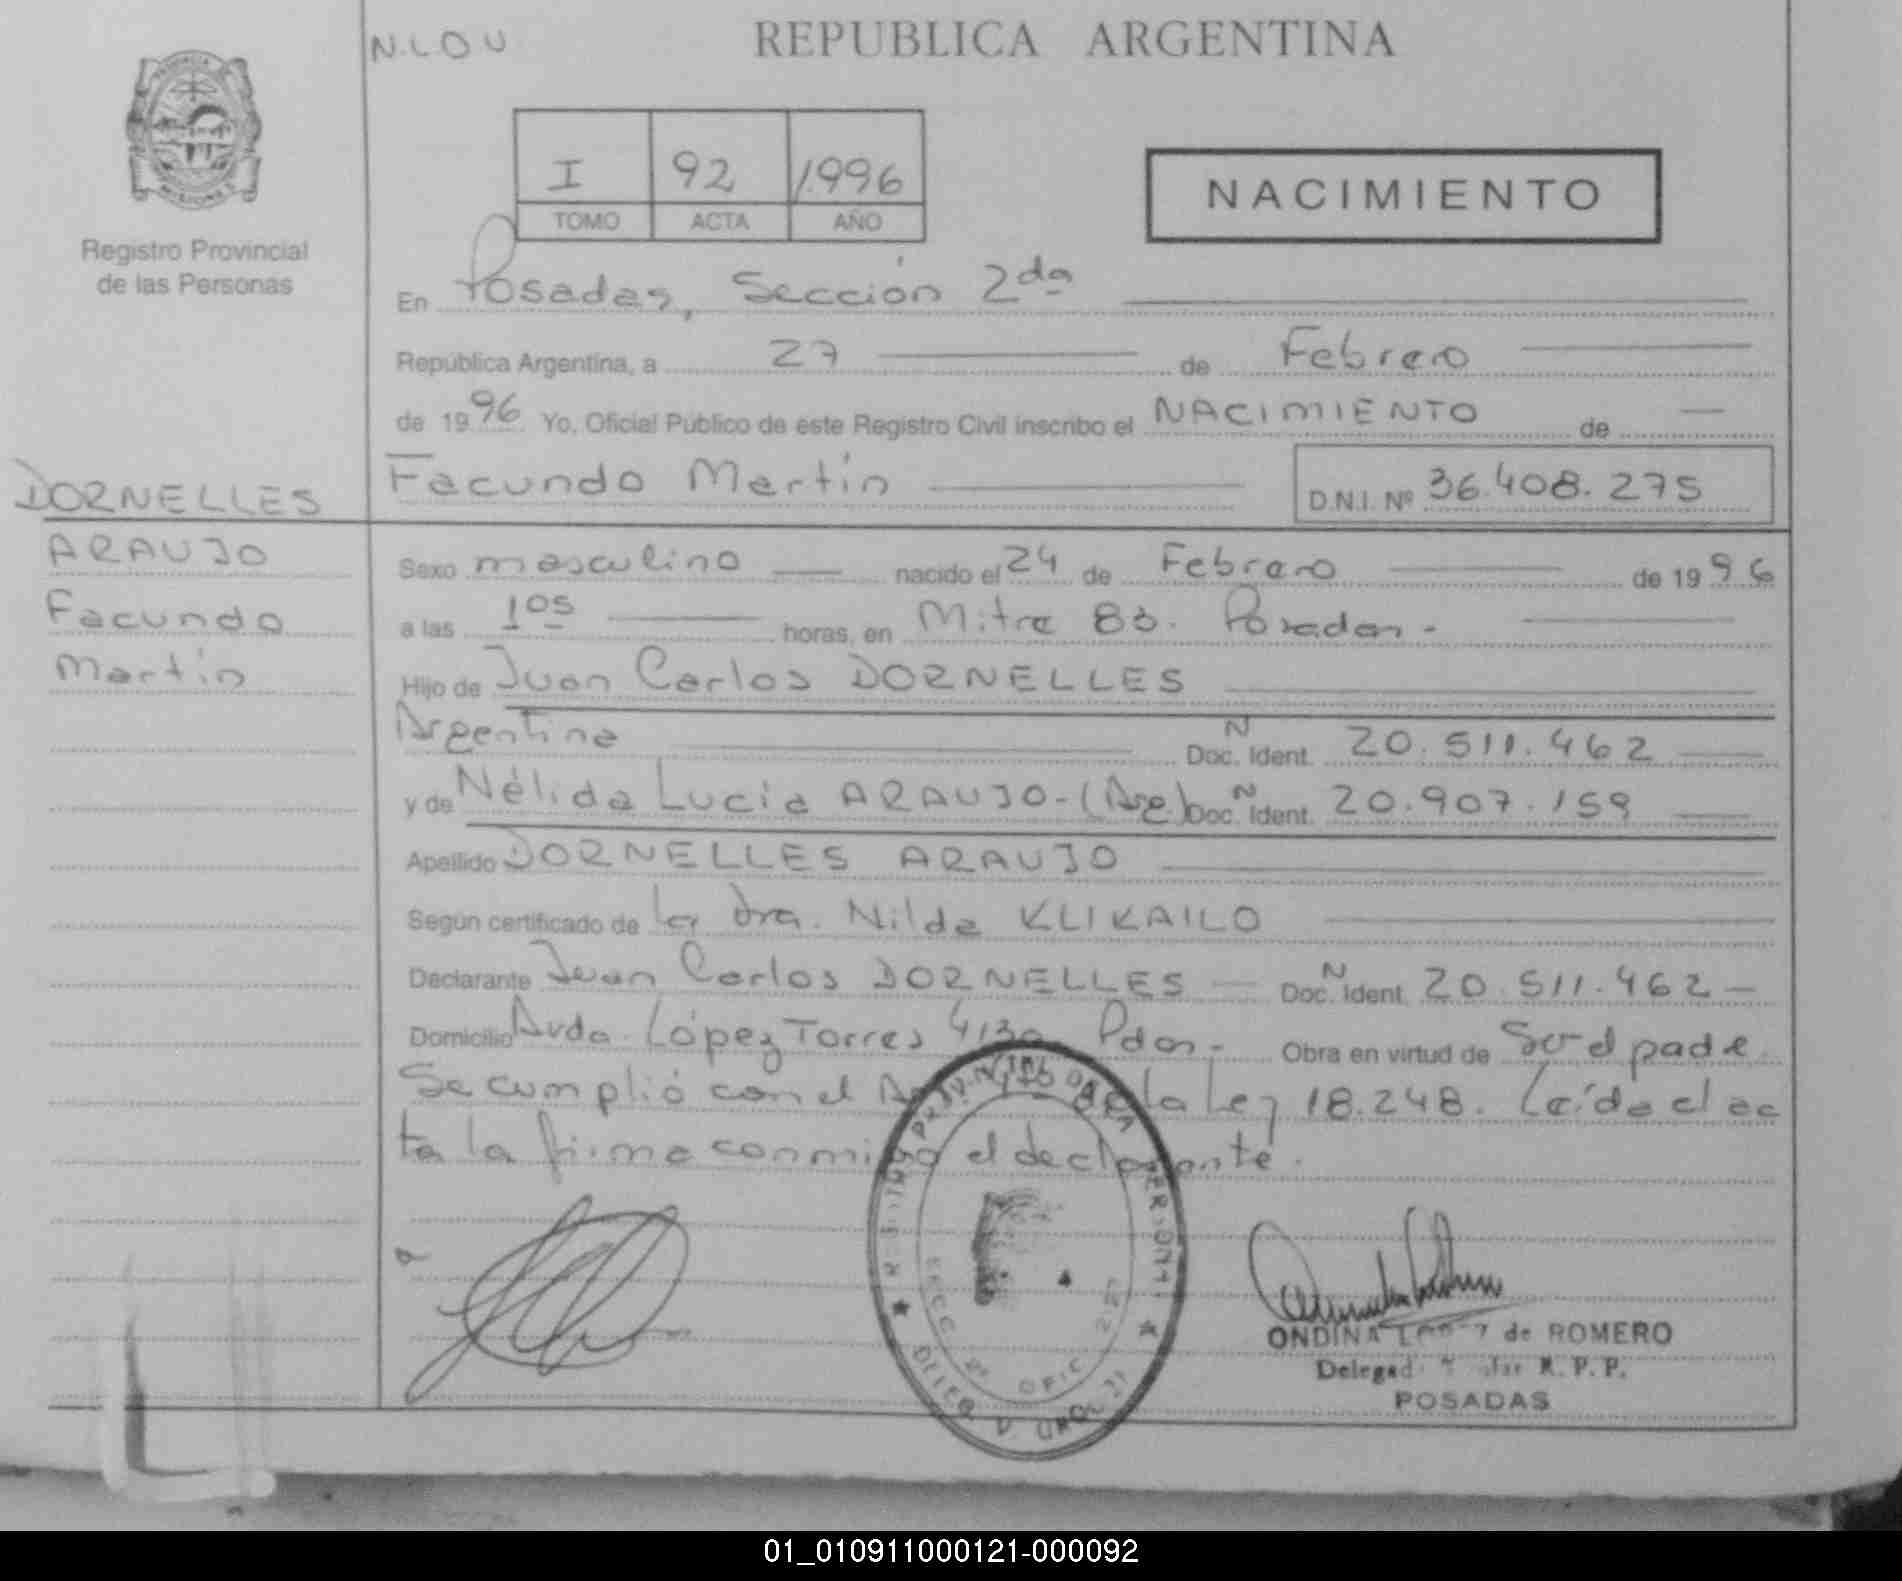 N.LOU
REPUBLICA ARGENTINA
I 92 1996
TOMO ACTA AÑO
NACIMIENTO
Registro Provincial
de las Personas
En Posadas, Sección 2da
República Argentina, a 27 de Febrero
de 1996 Yo, Oficial Público de este Registro Civil inscribo el NACIMIENTO de
Facundo Martín D.N.I. Nº 36.408.275
DORNELLES
ARAUJO
Facundo
Martín
Sexo masculino nacido el 24 de Febrero de 1996
a las 105 horas, en Mitre 83. Posadas.-
Hijo de Juan Carlos DORNELLES
Argentina Doc. Ident. N 20.511.462
y de Nélida Lucia ARAUJO-(Arg.) Doc. Ident. N 20.907.159
Apellido DORNELLES ARAUJO
Según certificado de la Dra. Nilda KLIKAILO
Declarante Juan Carlos DORNELLES Doc. Ident. N 20.511.462-
Domicilio Avda. López Torres Pdas.- Obra en virtud de
Se cumplió con el de la Ley 18.248. Leída el ac
ta la firma conmigo el declarante.
ONDINA de ROMERO
R. P. P.
POSADAS
01_010911000121-000092